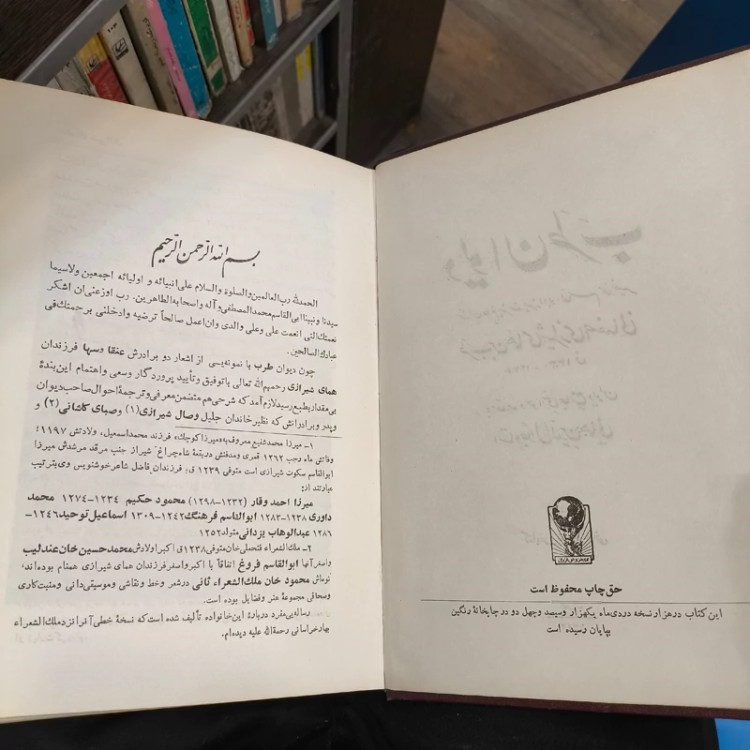 حق چاپ محفوظ است
این کتاب در هزار نسخه در دی ماه یکهزار و سیصد و چهل دو در چاپخانهٔ رنگین
بپایان رسیده است
بسم الله الرحمن الرحیم
الحمدلله رب العالمین والسلوة والسلام علی انبیائه و اولیائه اجمعین ولاسیما
سیدنا ونبینا ابی القاسم محمد المصطفی و آله واصحابه الطاهرین. رب اوزعنی ان اشکر
نعمتك التی انعمت علی وعلی والدی وان اعمل صالحاً ترضیه وادخلنی برحمتك فی
عبادك الصالحین.
چون دیوان طرب با نمونه‌یی از اشعار دو برادرش عنقا وسها فرزندان
همای شیرازی رحمهم الله تعالی با توفیق و تأیید پروردگار وسعی واهتمام این بندهٔ
بی‌مقدار بطبع رسید لازم آمد که شرحی هم متضمن معرفی و ترجمهٔ احوال صاحب دیوان
و پدر و برادرانش که نظیر خاندان جلیل وصال شیرازی (۱) و صبای کاشانی (۲) و
۱- میرزا محمد شفیع معروف به «میرزا کوچك» فرزند محمد اسمعیل، ولادتش ۱۱۹۷
وفاتش ماه رجب ۱۲۶۲ قمری ومدفنش در بقعهٔ شاه چراغ شیراز جنب مرقد مرشدش میرزا
ابوالقاسم سکوت شیرازی است متوفی ۱۲۳۹ ق: فرزندان فاضل شاعر خوشنویس وی بترتیب
عبارتند از:
میرزا احمد وقار (۱۲۳۲-۱۲۹۸) محمود حکیم ۱۲۳۴-۱۲۷۴ محمد
داوری ۱۲۳۸-۱۲۸۳ ابوالقاسم فرهنگ ۱۲۴۲-۱۳۰۹ اسماعیل توحید ۱۲۴۶-
۱۲۸۶ عبدالوهاب یزدانی متولد ۱۲۵۲
۲- ملك الشعراء فتحعلی خان متوفی ۱۲۳۸ ق اکبر اولادش محمد حسین خان عندلیب
واصغر آنها ابوالقاسم فروغ اتفاقاً با اکبر واصغر فرزندان همای شیرازی همنام بوده‌اند،
نوه‌اش محمود خان ملك الشعراء ثانی در شعر و خط و نقاشی و موسیقی دانی و منبت کاری
وصحافی مجموعهٔ هنر و فضایل بوده است.
رساله‌یی مفرد دربارهٔ این خانواده تألیف شده است که نسخهٔ خطی آنرا نزد ملك الشعراء
بهار خراسانی رحمة الله علیه دیده‌ام.